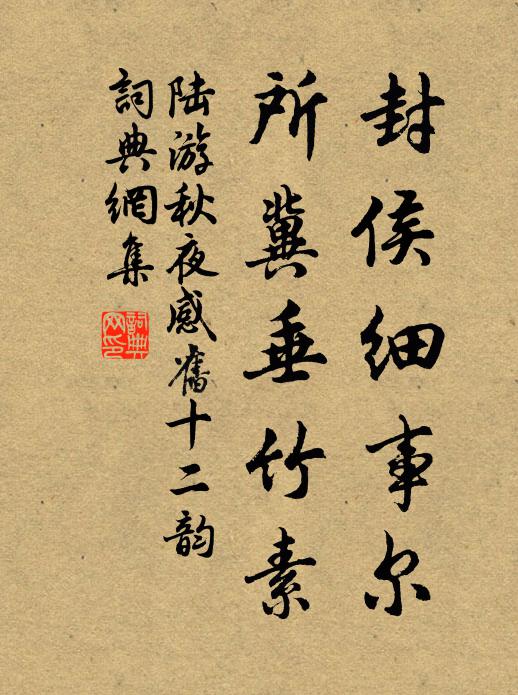 封侯细事尔
所冀垂竹素
陆游秋夜感舊十二韵
詞典網集
詞典网印